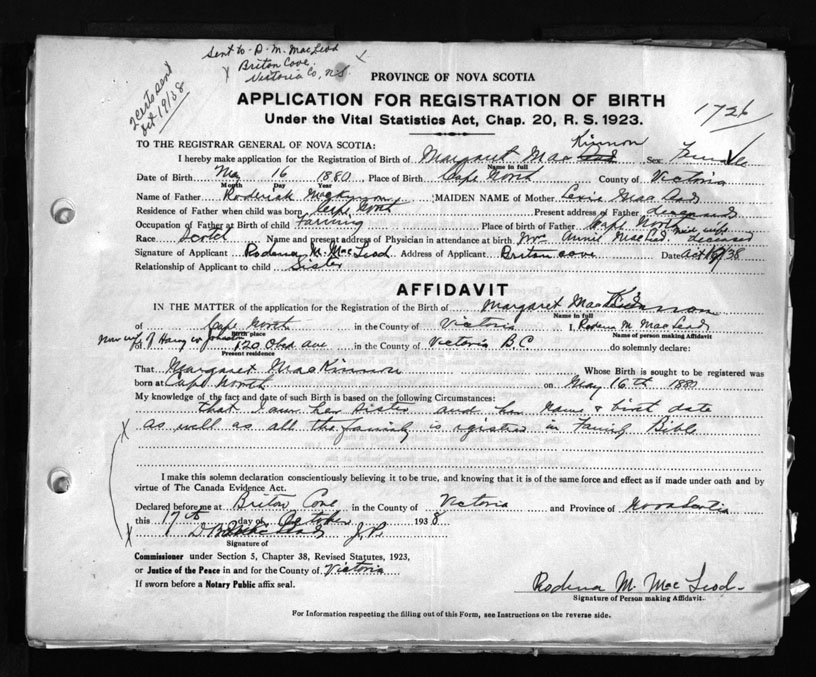 Sent to D. M. MacLeod
Briton Cove
Victoria Co, N.S
2 certs sent
Oct 19/38
PROVINCE OF NOVA SCOTIA
APPLICATION FOR REGISTRATION OF BIRTH
1726
Under the Vital Statistics Act, Chap. 20, R. S. 1923.
TO THE REGISTRAR GENERAL OF NOVA SCOTIA:
I hereby make application for the Registration of Birth of Margaret Mac Kinnon Sex Female
Name in full
Date of Birth May 16 1880 Place of Birth Cape North County of Victoria
Month Day Year
Name of Father Roderick McKinnon MAIDEN NAME of Mother MacLeod
Residence of Father when child was born Cape North Present address of Father
Occupation of Father at Birth of child Farming Place of birth of Father Cape North
Race Scotch Name and present address of Physician in attendance at birth Mrs Annie MacLeod mid wife deceased
Signature of Applicant Rodena M. MacLeod Address of Applicant Briton cove Date Oct 17/38
Relationship of Applicant to child Sister
AFFIDAVIT
IN THE MATTER of the application for the Registration of the Birth of Margaret MacKinnon
Name in full
of Cape North in the County of Victoria I, Rodena M MacLeod
Birth place Name of person making Affidavit
Now wife of Harry Johnston
of 120 Ave in the County of Victoria B.C do solemnly declare:
Present residence
That Margaret MacKinnon Whose Birth is sought to be registered was
born at Cape North on May 16th 1880
My knowledge of the fact and date of such Birth is based on the following Circumstances:
that I am her sister and her name & birth date
as well as all the family is registered in Family Bible
I make this solemn declaration conscientiously believing it to be true, and knowing that it is of the same force and effect as if made under oath and by
virtue of The Canada Evidence Act.
Declared before me at Briton Cove in the County of Victoria and Province of Nova Scotia
this 17th day of October 1938
D. MacLeod J.P.
Signature of
Commissioner under Section 5, Chapter 38, Revised Statutes, 1923,
or Justice of the Peace in and for the County of Victoria
If sworn before a Notary Public affix seal.
Rodena M. MacLeod
Signature of Person making Affidavit.
For Information respecting the filling out of this Form, see Instructions on the reverse side.